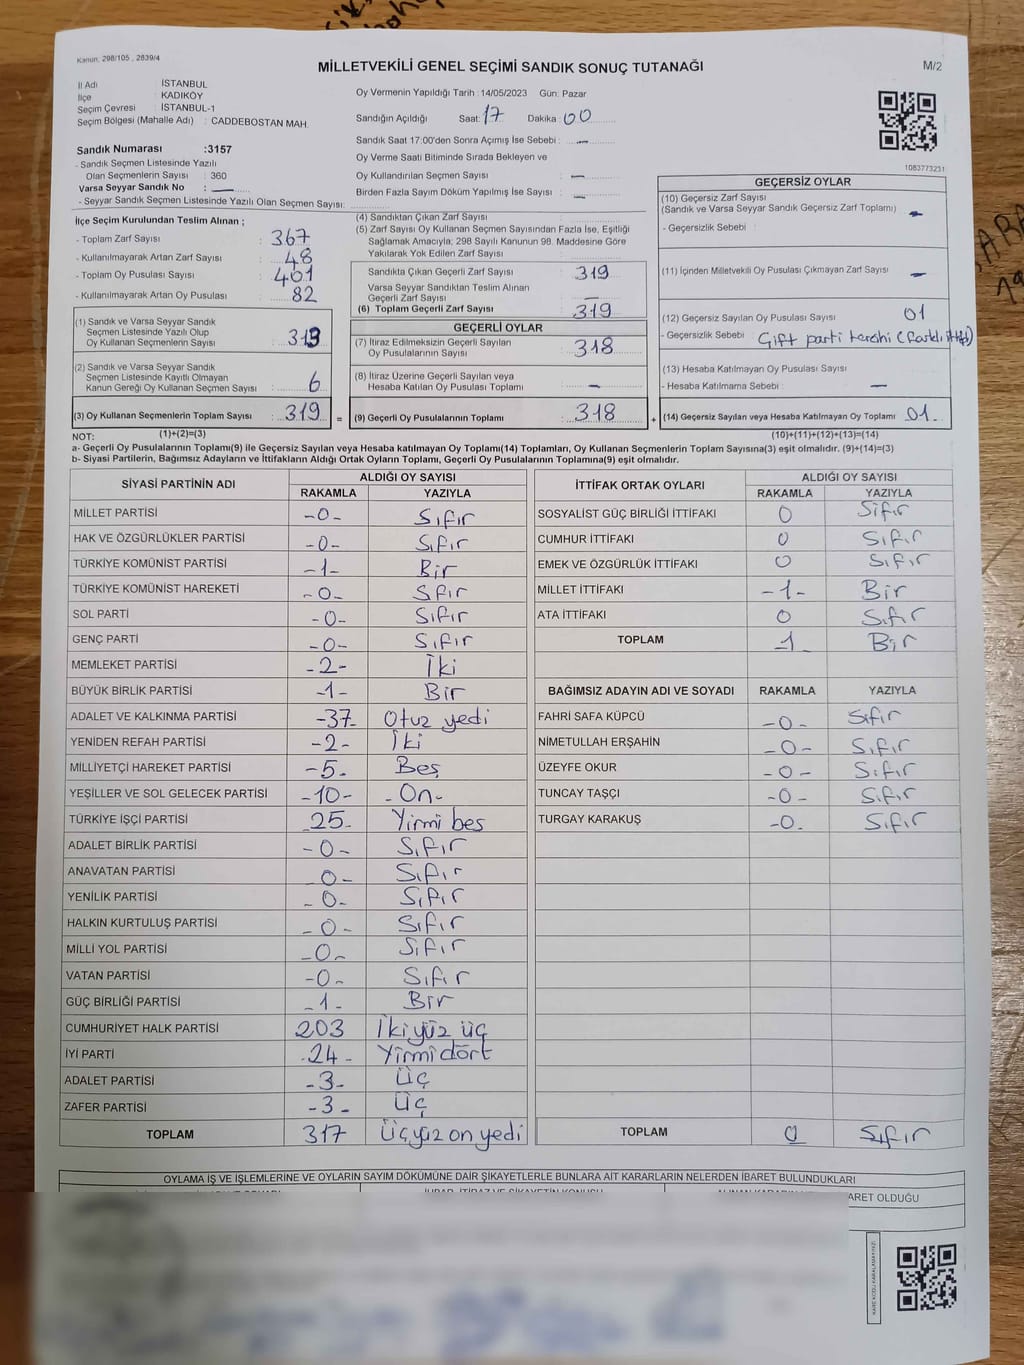 Kanun: 298/105 , 2839/4
MİLLETVEKİLİ GENEL SEÇİMİ SANDIK SONUÇ TUTANAĞI
M/2
İl Adı : İSTANBUL
İlçe : KADIKÖY
Seçim Çevresi : İSTANBUL-1
Seçim Bölgesi (Mahalle Adı) : CADDEBOSTAN MAH.
Oy Vermenin Yapıldığı Tarih : 14/05/2023 Gün: Pazar
Sandığın Açıldığı Saat: 17 Dakika: 00
Sandık Saat 17:00'den Sonra Açımış İse Sebebi : —
Oy Verme Saati Bitiminde Sırada Bekleyen ve
Oy Kullandırılan Seçmen Sayısı : —
Birden Fazla Sayım Döküm Yapılmış İse Sayısı : —
1083773231
Sandık Numarası :3157
- Sandık Seçmen Listesinde Yazılı
Olan Seçmenlerin Sayısı : 360
Varsa Seyyar Sandık No : —
- Seyyar Sandık Seçmen Listesinde Yazılı Olan Seçmen Sayısı:
İlçe Seçim Kurulundan Teslim Alınan ;
- Toplam Zarf Sayısı : 367
- Kullanılmayarak Artan Zarf Sayısı : 48
- Toplam Oy Pusulası Sayısı : 401
- Kullanılmayarak Artan Oy Pusulası : 82
(1) Sandık ve Varsa Seyyar Sandık
Seçmen Listesinde Yazılı Olup
Oy Kullanan Seçmenlerin Sayısı : 313
(2) Sandık ve Varsa Seyyar Sandık
Seçmen Listesinde Kayıtlı Olmayan
Kanun Gereği Oy Kullanan Seçmen Sayısı : 6
(3) Oy Kullanan Seçmenlerin Toplam Sayısı : 319 =
(4) Sandıktan Çıkan Zarf Sayısı
(5) Zarf Sayısı Oy Kullanan Seçmen Sayısından Fazla İse, Eşitliği
Sağlamak Amacıyla; 298 Sayılı Kanunun 98. Maddesine Göre
Yakılarak Yok Edilen Zarf Sayısı :
Sandıkta Çıkan Geçerli Zarf Sayısı : 319
Varsa Seyyar Sandıktan Teslim Alınan
Geçerli Zarf Sayısı : —
(6) Toplam Geçerli Zarf Sayısı : 319
GEÇERLİ OYLAR
(7) İtiraz Edilmeksizin Geçerli Sayılan
Oy Pusulalarının Sayısı : 318
(8) İtiraz Üzerine Geçerli Sayılan veya
Hesaba Katılan Oy Pusulası Toplamı : —
(9) Geçerli Oy Pusulalarının Toplamı : 318 +
GEÇERSİZ OYLAR
(10) Geçersiz Zarf Sayısı
(Sandık ve Varsa Seyyar Sandık Geçersiz Zarf Toplamı) : —
- Geçersizlik Sebebi :
(11) İçinden Milletvekili Oy Pusulası Çıkmayan Zarf Sayısı : —
(12) Geçersiz Sayılan Oy Pusulası Sayısı : 01
- Geçersizlik Sebebi : Çift parti tercihi (farklı ittif)
(13) Hesaba Katılmayan Oy Pusulası Sayısı
- Hesaba Katılmama Sebebi : —
(14) Geçersiz Sayılan veya Hesaba Katılmayan Oy Toplamı : 01
NOT: (1)+(2)=(3) (10)+(11)+(12)+(13)=(14)
a- Geçerli Oy Pusulalarının Toplamı(9) ile Geçersiz Sayılan veya Hesaba katılmayan Oy Toplamı(14) Toplamları, Oy Kullanan Seçmenlerin Toplam Sayısına(3) eşit olmalıdır. (9)+(14)=(3)
b- Siyasi Partilerin, Bağımsız Adayların ve İttifakların Aldığı Ortak Oyların Toplamı, Geçerli Oy Pusulalarının Toplamına(9) eşit olmalıdır.
SİYASİ PARTİNİN ADI ALDIĞI OY SAYISI
RAKAMLA YAZIYLA
MİLLET PARTİSİ -0- Sıfır
HAK VE ÖZGÜRLÜKLER PARTİSİ -0- Sıfır
TÜRKİYE KOMÜNİST PARTİSİ -1- Bir
TÜRKİYE KOMÜNİST HAREKETİ -0- Sfır
SOL PARTİ -0- Sıfır
GENÇ PARTİ -0- Sıfır
MEMLEKET PARTİSİ -2- İki
BÜYÜK BİRLİK PARTİSİ -1- Bir
ADALET VE KALKINMA PARTİSİ -37- Otuz yedi
YENİDEN REFAH PARTİSİ -2- İki
MİLLİYETÇİ HAREKET PARTİSİ -5- Beş
YEŞİLLER VE SOL GELECEK PARTİSİ -10- -On-
TÜRKİYE İŞÇİ PARTİSİ 25- Yirmi beş
ADALET BİRLİK PARTİSİ -0- Sıfır
ANAVATAN PARTİSİ -0- Sıfır
YENİLİK PARTİSİ -0- Sıfır
HALKIN KURTULUŞ PARTİSİ -0- Sıfır
MİLLİ YOL PARTİSİ -0- Sıfır
VATAN PARTİSİ -0- Sıfır
GÜÇ BİRLİĞİ PARTİSİ -1- Bir
CUMHURİYET HALK PARTİSİ 203 İkiyüz üç
İYİ PARTİ -24- Yirmidört
ADALET PARTİSİ -3- Üç
ZAFER PARTİSİ -3- Üç
TOPLAM 317 Üçyüz on yedi
İTTİFAK ORTAK OYLARI ALDIĞI OY SAYISI
RAKAMLA YAZIYLA
SOSYALİST GÜÇ BİRLİĞİ İTTİFAKI 0 Sıfır
CUMHUR İTTİFAKI 0 Sıfır
EMEK VE ÖZGÜRLÜK İTTİFAKI 0 Sıfır
MİLLET İTTİFAKI -1- Bir
ATA İTTİFAKI 0 Sıfır
TOPLAM 1 Bir
BAĞIMSIZ ADAYIN ADI VE SOYADI RAKAMLA YAZIYLA
FAHRİ SAFA KÜPCÜ -0- Sıfır
NİMETULLAH ERŞAHİN -0- Sıfır
ÜZEYFE OKUR -0- Sıfır
TUNCAY TAŞÇI -0- Sıfır
TURGAY KARAKUŞ -0- Sıfır
TOPLAM 0 Sıfır
OYLAMA İŞ VE İŞLEMLERİNE VE OYLARIN SAYIM DÖKÜMÜNE DAİR ŞİKAYETLERLE BUNLARA AİT KARARLARIN NELERDEN İBARET BULUNDUKLARI
İHBAR, İTİRAZ VE ŞİKAYETİN KONUSU
ARET OLDUĞU
KARE KODU KARALAMAYINIZ!